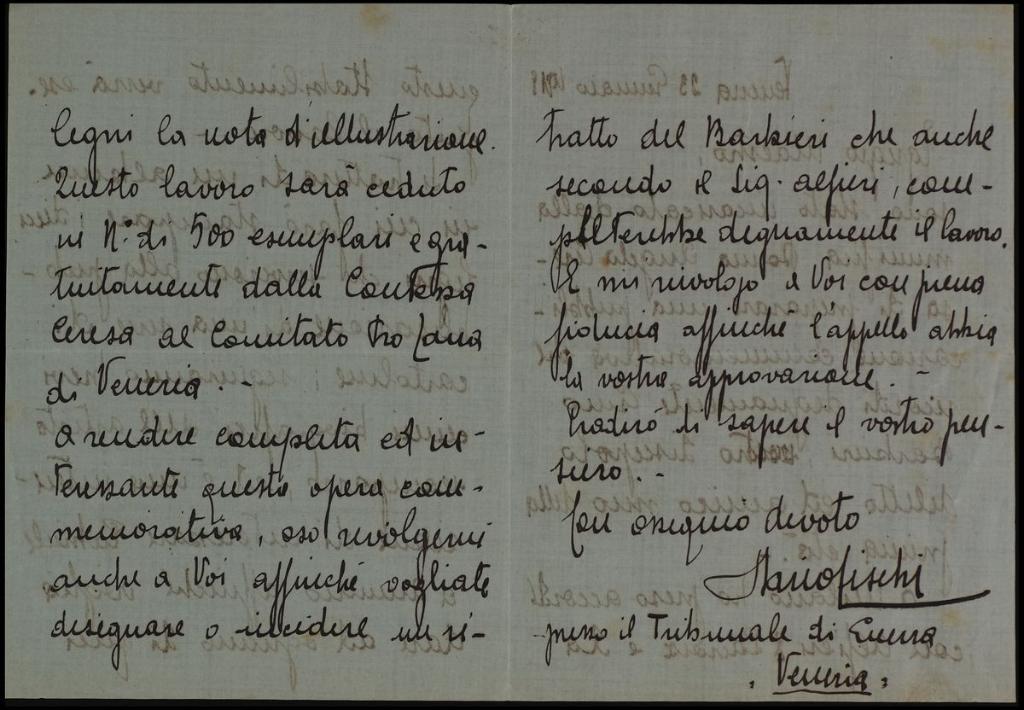 legni la nota d'illustrazione.
Questo lavoro sarà ceduto
in N.º di 500 esemplari e gra-
tuitamente dalla Contessa
Ceresa al Comitato Pro
di Venezia. -
a rendere completa ed in-
teressante questa opera com-
memorativa, oso rivolgermi
anche a Voi affinché vogliate
disegnare o incidere un ri-
tratto del Barbieri che anche
secondo il Sig. Alfieri, com-
pleterebbe degnamente il lavoro.
E mi rivolgo a Voi con piena
fiducia affinché l'appello abbia
la vostra approvazione. -
Gradirò di sapere il vostro pen-
siero. -
Con ossequio devoto
presso il Tribunale di Guerra
Venezia